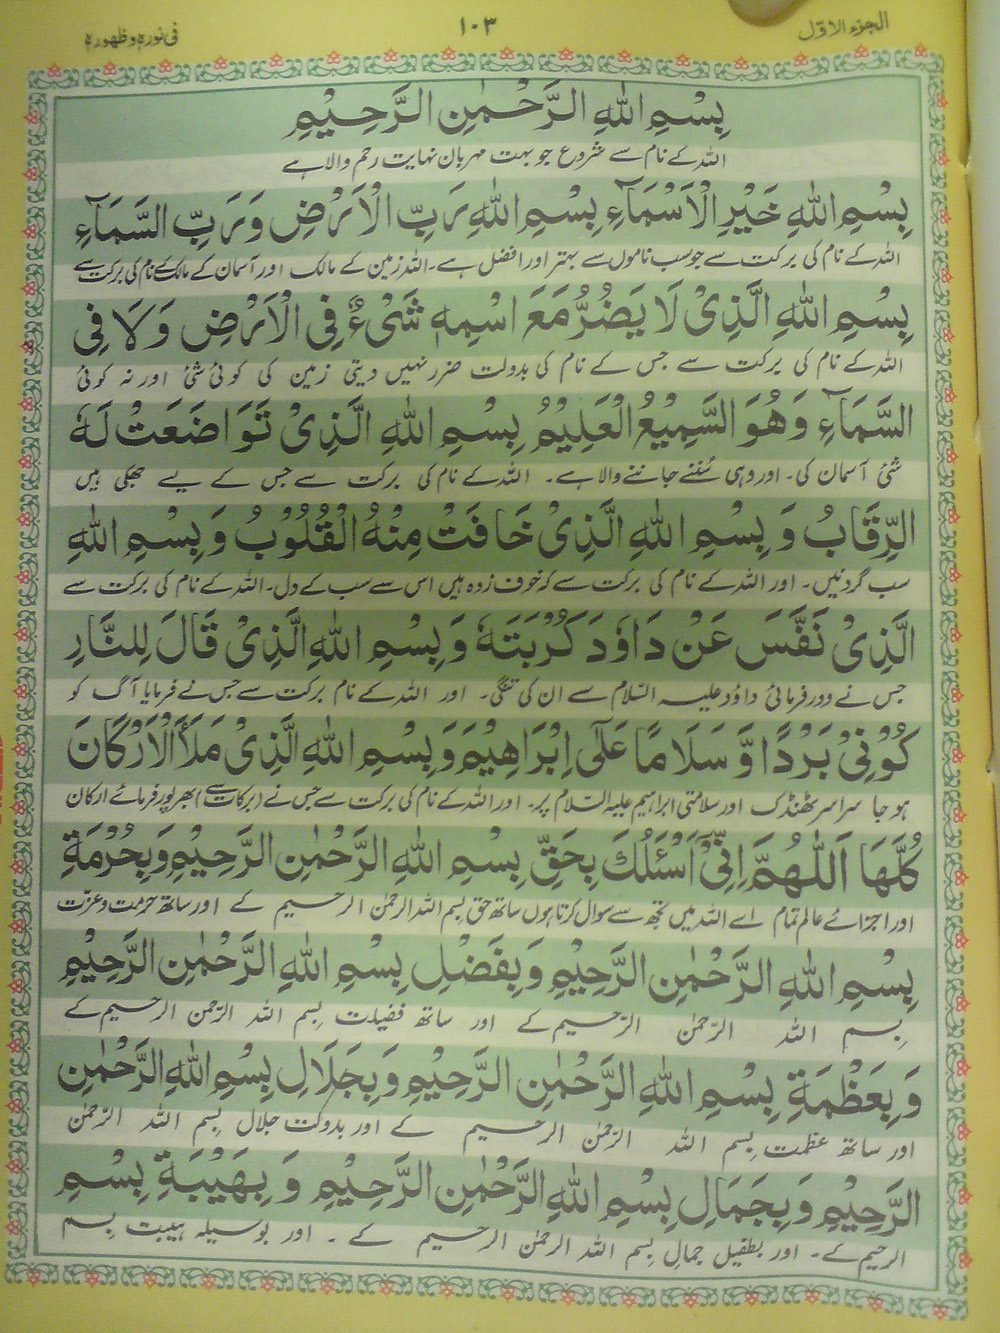 الجزء الاوّل
١٠٣
فی نورہٖ وظھورہٖ
بِسْمِ اللهِ الرَّحْمٰنِ الرَّحِيْمِ
اللہ کے نام سے شروع جو بہت مہربان نہایت رحم والا ہے
بِسْمِ اللهِ خَيْرِ الْاَسْمَآءِ بِسْمِ اللهِ رَبِّ الْاَرْضِ وَرَبِّ السَّمَآءِ
اللہ کے نام کی برکت سے جو سب ناموں سے بہتر اور افضل ہے۔ اللہ زمین کے مالک اور آسمان کے مالک کے نام کی برکت سے
بِسْمِ اللهِ الَّذِىْ لَا يَضُرُّ مَعَ اسْمِهٖ شَىْءٌ فِى الْاَرْضِ وَلَا فِى
اللہ کے نام کی برکت سے جس کے نام کی بدولت ضرر نہیں دیتی زمین کی کوئی شئ اور نہ کوئی
السَّمَآءِ وَهُوَ السَّمِيْعُ الْعَلِيْمُ بِسْمِ اللهِ الَّذِىْ تَوَاضَعَتْ لَهٗ
شئ آسمان کی۔ اور وہی سُننے جاننے والا ہے۔ اللہ کے نام کی برکت سے جس کے لیے جھکی ہیں
الرِّقَابُ وَ بِسْمِ اللهِ الَّذِىْ خَافَتْ مِنْهُ الْقُلُوْبُ وَ بِسْمِ اللهِ
سب گردنیں۔ اور اللہ کے نام کی برکت سے کہ خوف زدہ ہیں اس سے سب کے دل۔ اللہ کے نام کی برکت سے
الَّذِىْ نَفَّسَ عَنْ دَاوٗدَ كُرْبَتَهٗ وَ بِسْمِ اللهِ الَّذِىْ قَالَ لِلنَّارِ
جس نے دور فرمائی داؤد علیہ السّلام سے ان کی تنگی۔ اور اللہ کے نام برکت سے جس نے فرمایا آگ کو
كُوْنِىْ بَرْدًا وَّ سَلَامًا عَلٰٓى اِبْرَاهِيْمَ وَ بِسْمِ اللهِ الَّذِىْ مَلَأَ الْاَرْكَانَ
ہو جا سراسر ٹھنڈک اور سلامتی ابراہیم علیہ السّلام پر۔ اور اللہ کے نام کی برکت سے جس نے (برکات سے) بھرپور فرمائے ارکان
كُلَّهَا اَللّٰهُمَّ اِنِّىْٓ اَسْئَلُكَ بِحَقِّ بِسْمِ اللهِ الرَّحْمٰنِ الرَّحِيْمِ وَبِحُرْمَةِ
اور اجزائے عالم تمام اے اللہ میں تجھ سے سوال کرتا ہوں ساتھ حق بسم اللہ الرحمٰن الرحیم کے اور ساتھ حرمت و عزت
بِسْمِ اللهِ الرَّحْمٰنِ الرَّحِيْمِ وَ بِفَضْلِ بِسْمِ اللهِ الرَّحْمٰنِ الرَّحِيْمِ
بِسم اللہ الرّحمٰن الرّحیم کے اور ساتھ فضیلت بِسم اللہ الرّحمٰن الرحیم کے
وَ بِعَظْمَةِ بِسْمِ اللهِ الرَّحْمٰنِ الرَّحِيْمِ وَ بِجَلَالِ بِسْمِ اللهِ الرَّحْمٰنِ
اور ساتھ عظمت بِسم اللہ الرّحمٰن الرحیم کے اور بدولت جلال بِسم اللہ الرّحمٰن
الرَّحِيْمِ وَ بِجَمَالِ بِسْمِ اللهِ الرَّحْمٰنِ الرَّحِيْمِ وَ بِهَيْبَةِ بِسْمِ
الرحیم کے۔ اور بطفیل جمال بِسم اللہ الرحمٰن الرحیم کے ۔ اور بوسیلہ ہیبت بِسم